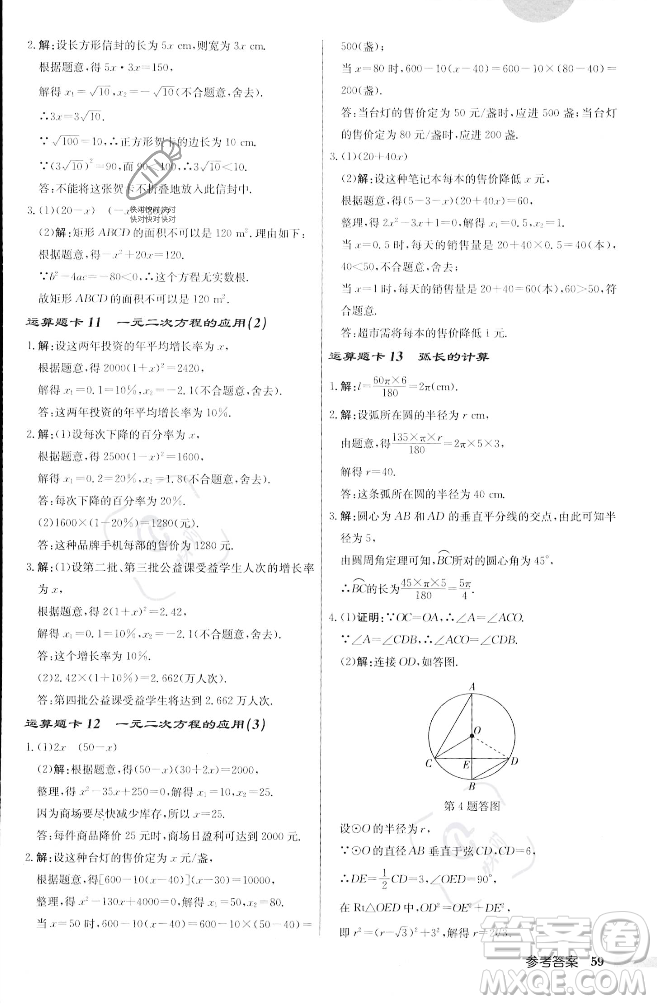 2.解:设长方形信封的长为5x cm,则宽为3x cm.
根据题意,得 5x·3x=150,
解得 x₁=√10,x₂=-√10(不合题意,舍去).
∴3x=3√10.
∵√100=10,∴正方形贺卡的边长为 10 cm.
∵(3√10)²=90,而 90<100,∴3√10<10.
答:不能将这张贺卡不折叠地放入此信封中.
3.(1)(20-x)
快对快对快对
快对快对快对
(2)解:矩形 ABCD 的面积不可以是 120 m².理由:
根据题意,得-x²+20x=120,
∵b²-4ac=-80<0,∴这个方程无实数根.
故矩形 ABCD 的面积不可以是 120 m².
运算题卡 11 一元二次方程的应用(2)
1.解:设这两年投资的年平均增长率为 x.
根据题意,得 2000(1+x)²=2420,
解得 x₁=0.1=10%,x₂=-2.1(不合题意,舍去).
答:这两年投资的年平均增长率为 10%.
2.解:(1)设每次下降的百分率为 x.
根据题意,得 2500(1-x)²=1600,
解得 x₁=0.2=20%,x₂=1.8(不合题意,舍去).
答:每次下降的百分率为 20%.
(2)1600×(1-20%)=1280(元).
答:这种品牌手机每部的售价为 1280 元.
3.解:(1)设第二批、第三批公益课受益学生人次的增长率为 x.
根据题意,得 2(1+x)²=2.42,
解得 x₁=0.1=10%,x₂=-2.1(不合题意,舍去).
答:这个增长率为 10%.
(2)2.42(1+0.1)=2.662(万人次).
答:第四批公益课受益学生将达到 2.662 万人次.
运算题卡 12 一元二次方程的应用(3)
1.(1)2x (50-x)
(2)解:根据题意,得(50-x)(30+2x)=2000,
整理,得 x²-35x+250=0,解得 x₁=10,x₂=25.
因为商场要尽快减少库存,所以 x=25.
答:每件商品降价 25 元时,商场日盈利可达到 2000 元.
2.解:设这种台灯的售价定为 x 元/盏.
根据题意,得[600-10(x-40)](x-30)=10000,
整理,得 x²-130x+4000=0,解得 x₁=50,x₂=80.
当 x=50 时,600-10(x-40)=600-10×(50-40)=
500(盏);
当 x=80 时,600-10(x-40)=600-10×(80-40)=
200(盏).
答:当台灯的售价定为 50 元/盏时,应进 500 盏;当台灯
的售价定为 80 元/盏时,应进 200 盏.
3.(1)(20+40x)
(2)解:设这种笔记本每本的售价降低 x 元.
根据题意,得(5-3-x)(20+40x)=60,
整理,得 2x²-3x+1=0,解得 x₁=0.5,x₂=1.
当 x=0.5 时,每天的销售量是 20+40×0.5=40(本),
40<50,不合题意,舍去;
当 x=1 时,每天的销售量是 20+40×1=60(本),60>50,
符合题意.
答:超市需将每本的售价降低 1 元.
运算题卡 13 弧长的计算
1.解:l=60π×6/180=2π(cm).
2.解:设弧所在圆的半径为 r cm,
由题意,得135×π×r/180=2π×5×3,
解得 r=40.
答:这条弧所在圆的半径为 40 cm.
3.解:圆心为 AB 和 AD 的垂直平分线的交点,由此可知半
径为 5,
由圆周角定理可知,B͡C所对的圆心角为 45°,
∴B͡C的长为45×π×5/180=5π/4.
4.(1)证明:∵OC=OA,∴∠A=∠ACO.
∵∠A=∠CDB,∴∠ACO=∠CDB.
(2)解:连接 OD,如答图.
A
O
C
E
D
B
第 4 题答图
设⊙O 的半径为 r,
∵⊙O 的直径 AB 垂直于弦 CD,垂足为 E,
∴DE=1/2CD=√3,∠OED=90°.
在 Rt△OED 中,OD²=OE²+DE²,
参考答案 59